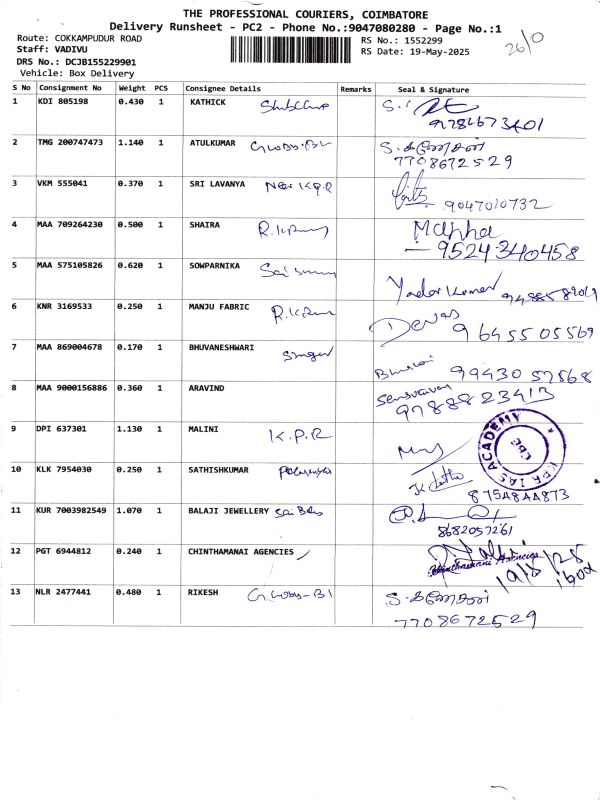 THE PROFESSIONAL COURIERS, COIMBATORE
Delivery Runsheet - PC2 - Phone No.:9047080280 - Page No.:1
Route: COKKAMPUDUR ROAD RS No.: 1552299
Staff: VADIVU RS Date: 19-May-2025 26/0
DRS No.: DCJB155229901
Vehicle: Box Delivery
S No Consignment No Weight PCS Consignee Details Remarks Seal & Signature
1 KDI 805198 0.430 1 KATHICK
9784673401
2 TMG 200747473 1.140 1 ATULKUMAR S. கணேசன்
7708672529
3 VKM 555041 0.370 1 SRI LAVANYA Near K.P.R
9047010732
4 MAA 709264230 0.500 1 SHAIRA
9524340458
5 MAA 575105826 0.620 1 SOWPARNIKA Yadav Kumar
6 KNR 3169533 0.250 1 MANJU FABRIC
9645505569
7 MAA 869004678 0.170 1 BHUVANESHWARI Singer
99430 57568
8 MAA 9000156886 0.360 1 ARAVIND
9788823413
9 DPI 637301 1.130 1 MALINI K.P.R
KPR IAS ACADEMY
CBE
10 KLK 7954030 0.250 1 SATHISHKUMAR
11 KUR 7003982549 1.070 1 BALAJI JEWELLERY
8682057261
12 PGT 6944812 0.240 1 CHINTHAMANAI AGENCIES
Chinthamani Agencies
13 NLR 2477441 0.480 1 RIKESH S. கணேசன்
7708672529